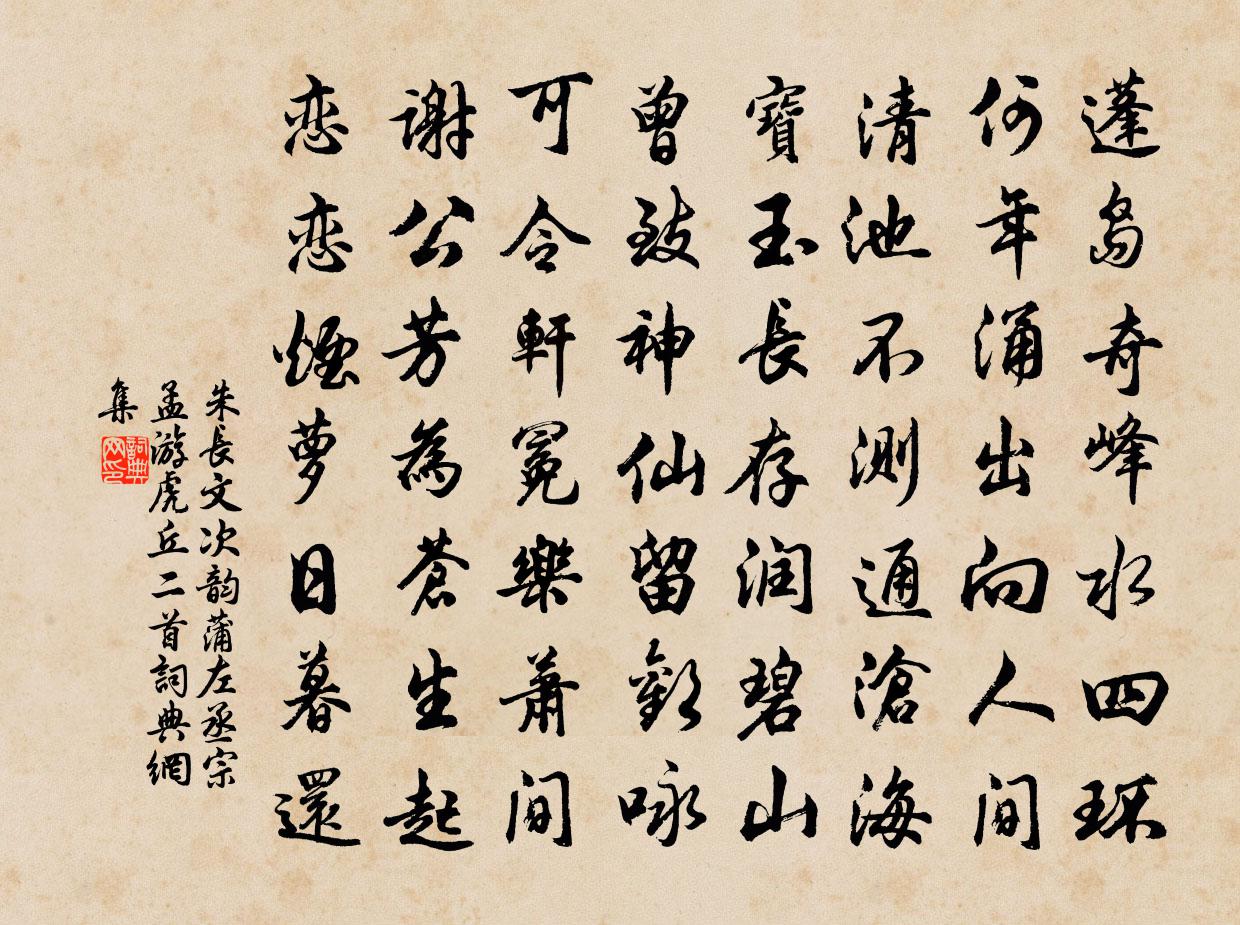 蓬岛奇峰水四环
何年涌出向人间
清池不测通滄海
寶玉長存润碧山
曾致神仙留歡咏
可令軒冕樂蕭间
謝公芳為蒼生起
恋恋煙萝日暮還
朱長文次韵蒲左丞宗
孟游虎丘二首詞典網
集
詞典網印